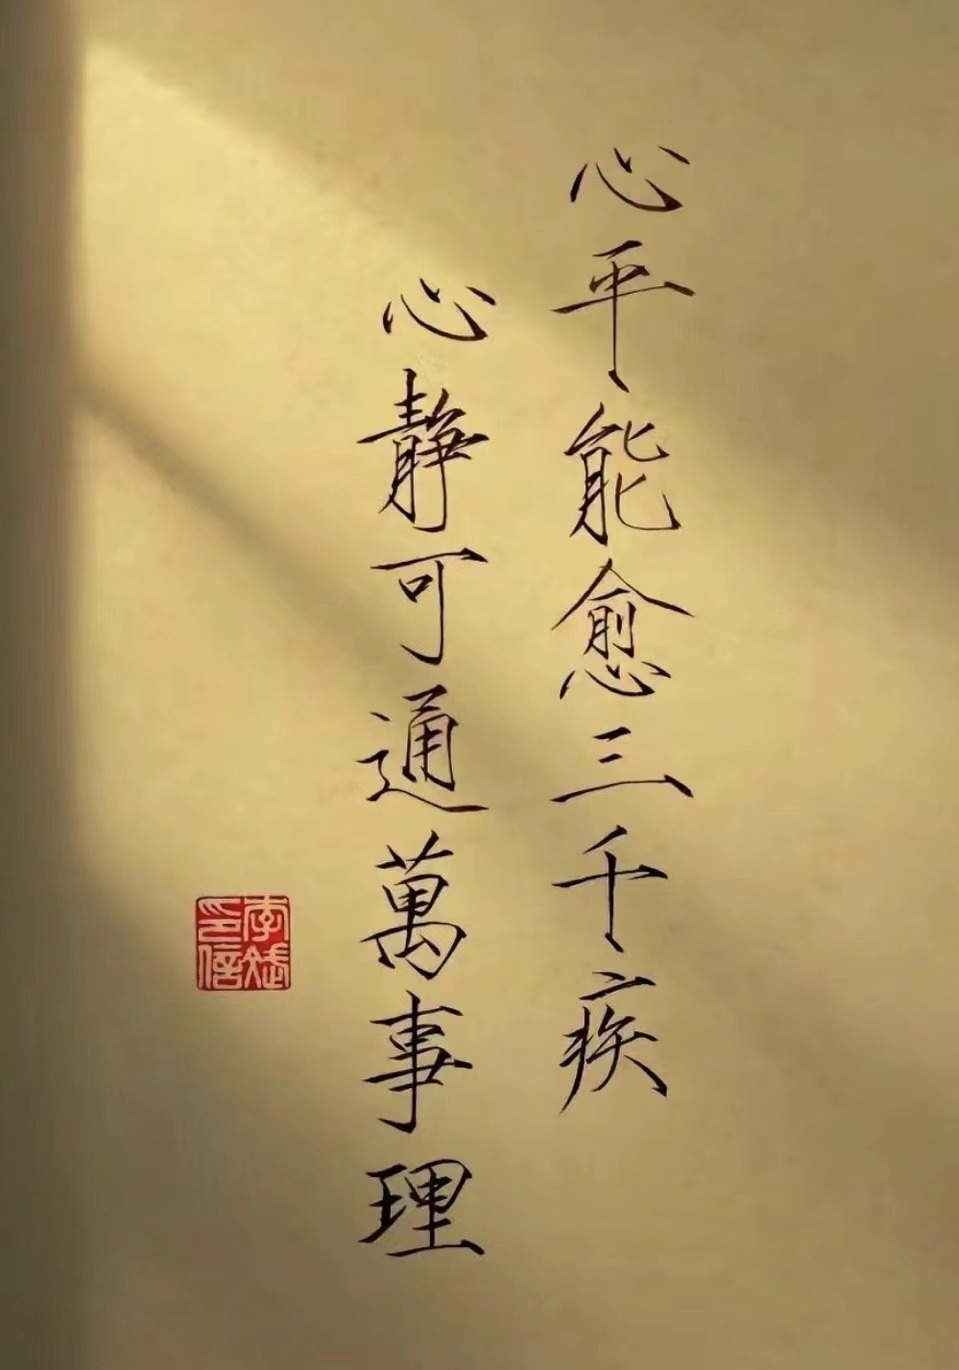 心平能愈三千疾
心靜可通萬事理